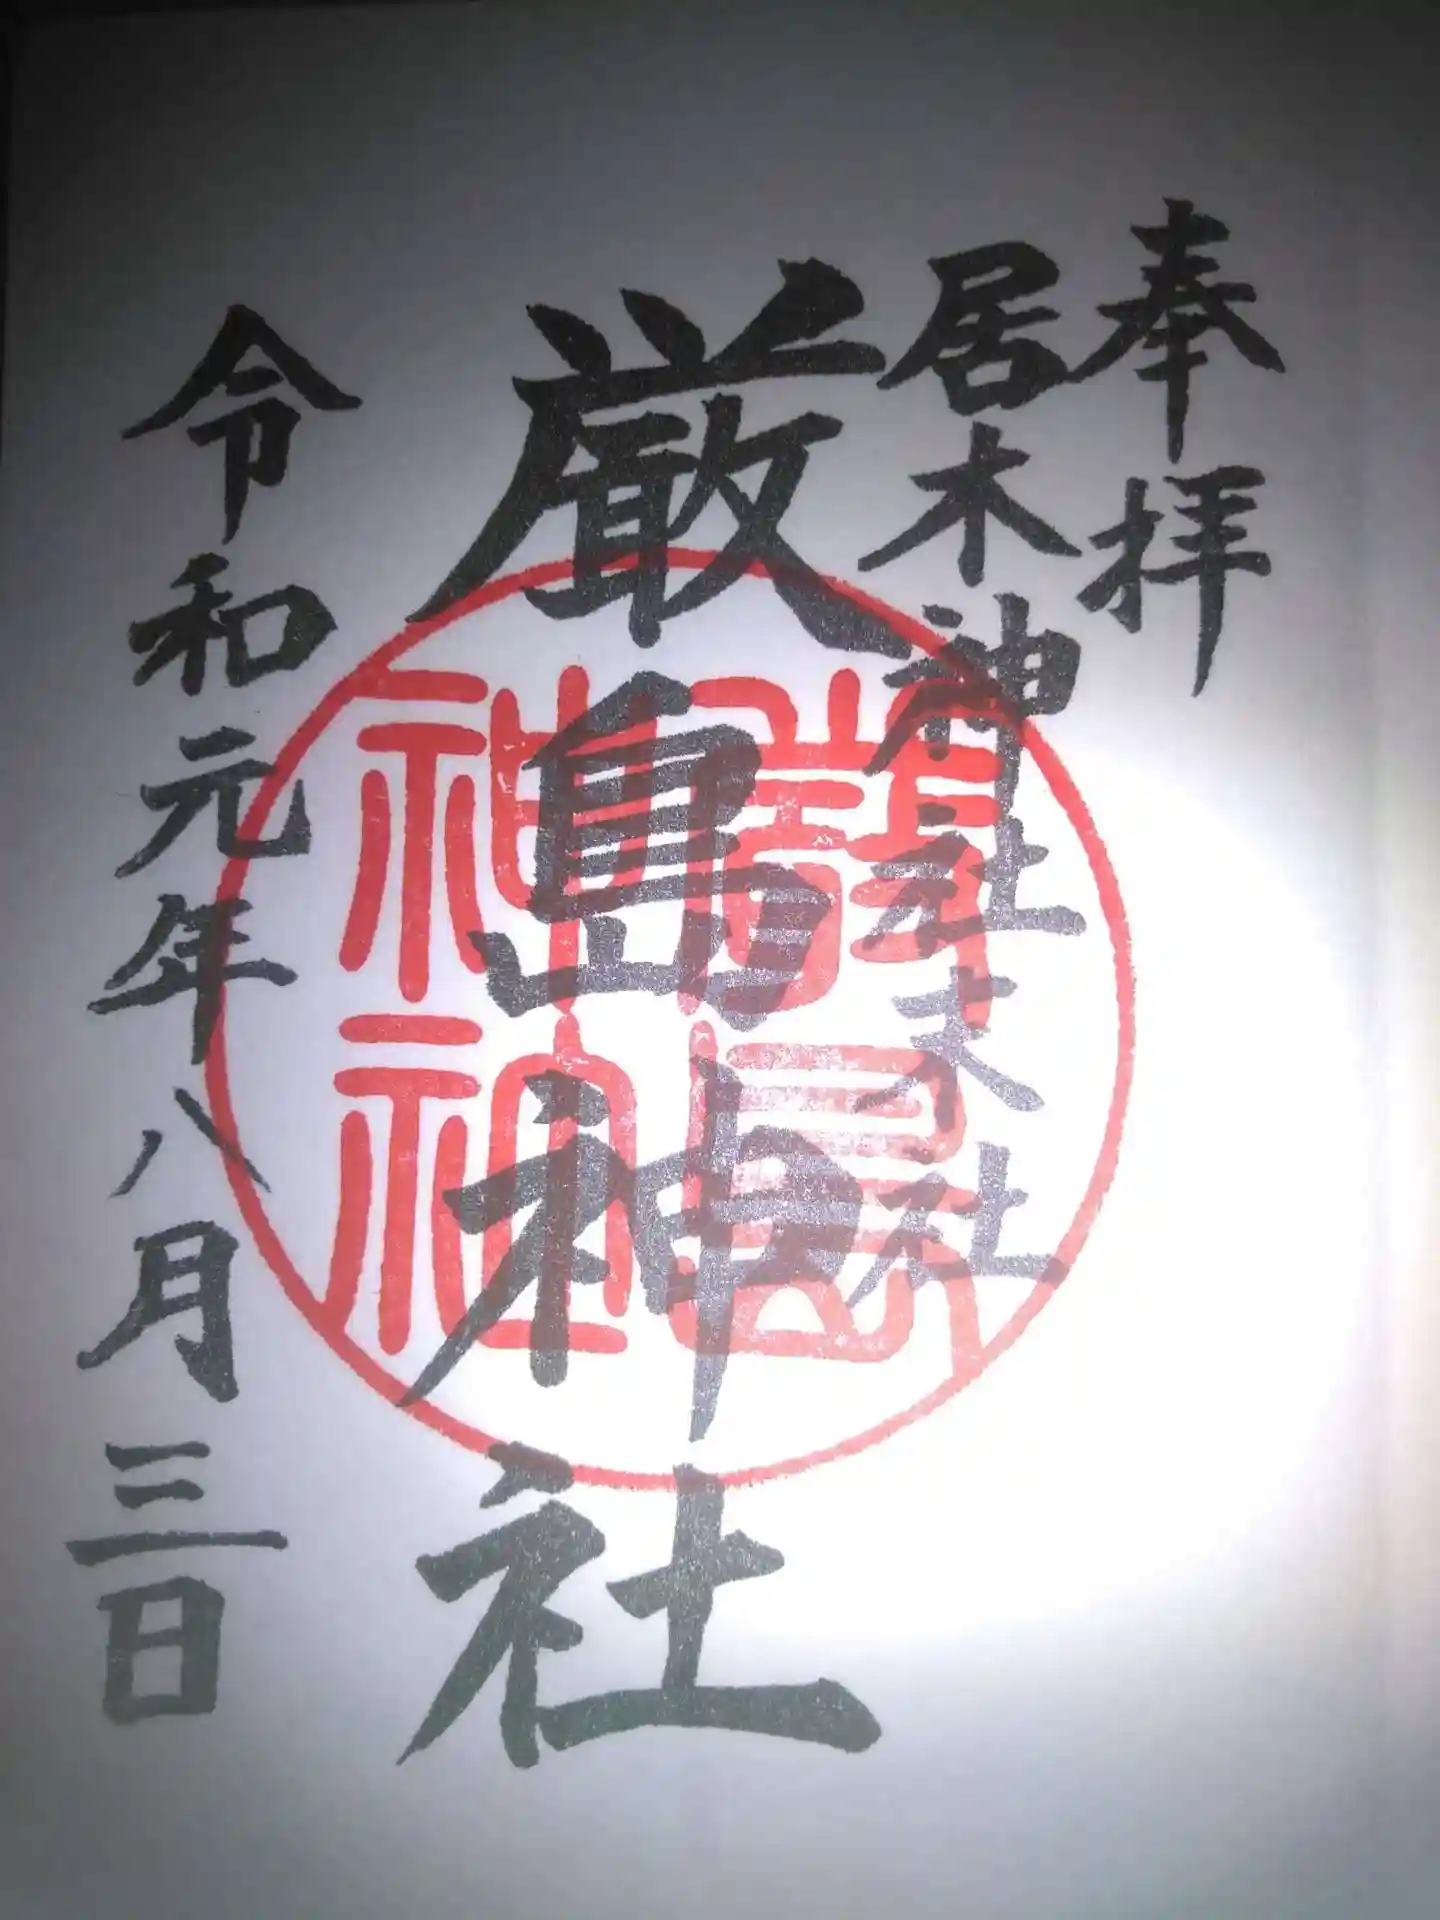 奉拝
居木神社末社
厳島神社
令和元年八月三日
嚴島
神社